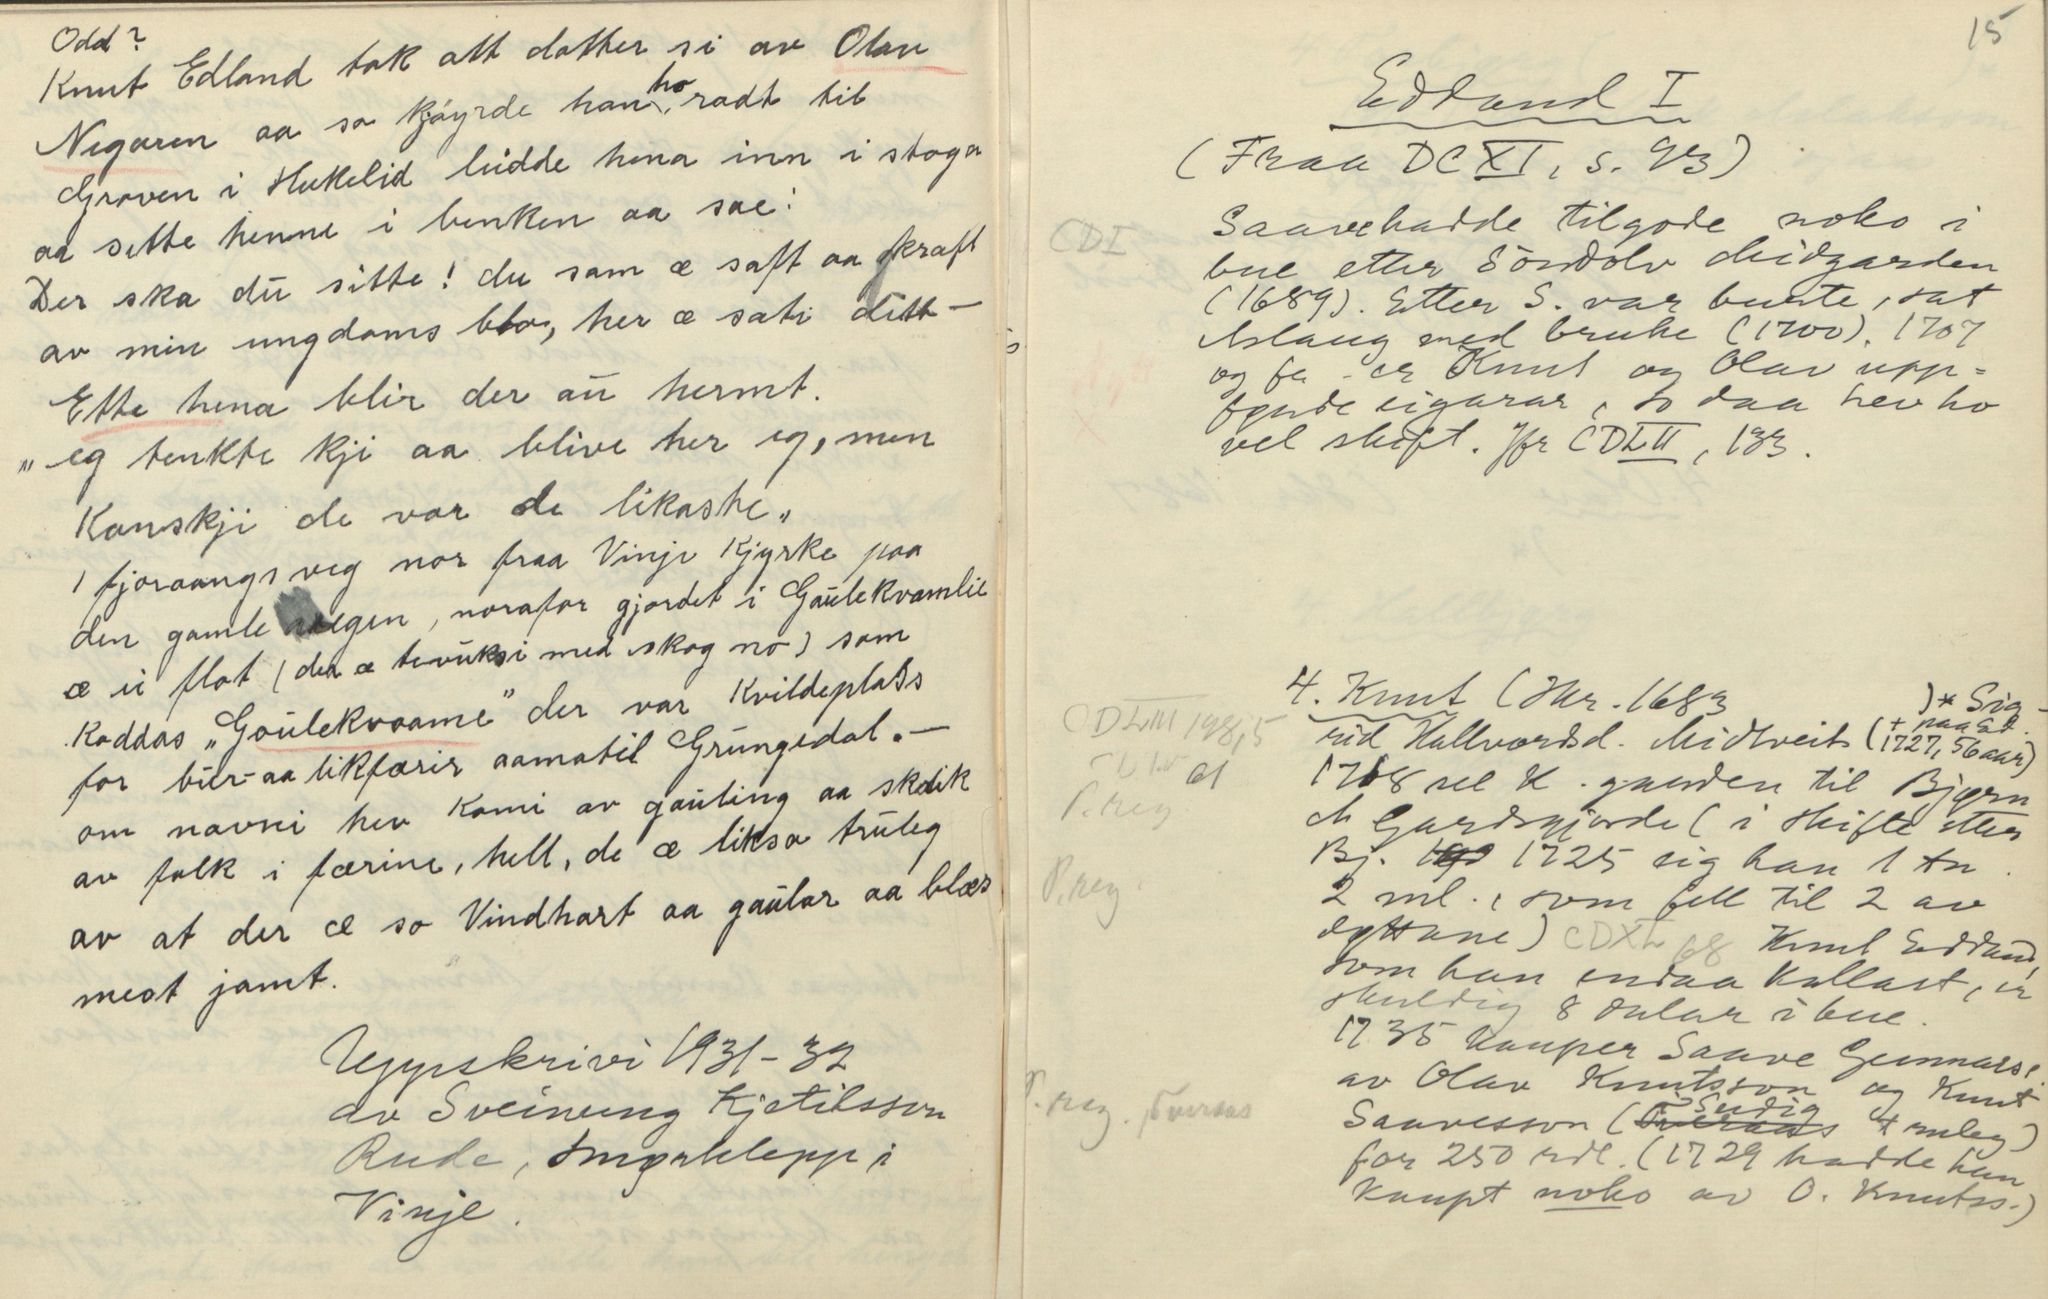 Odd?
Knut Edland tok att dotter si av Olav
Negaren aa so kjöyrde han ho radt til
Groven i Haukelid leidde hena inn i stoga
aa sette henne i benken aa sae:
Der ska dü sitte! du som æ saft aa kraft
av min ungdoms blo, her æ sati ditt —
Ette hena blir der aü hermt.
„eg tenkte kji aa blive her eg, men
Kanskji de var de likaste„
I fjoraangs veg nor fraa Vinje Kjyrke paa
den gamle vegen, norafor gjordet i Gaülekvamlie
æ ei flot (der æ tevüksi med skog no) som
kaddas „Gaülekvaame” der var Kvildeplass
for bür- aa likfærir aamatil Grüngedal. —
om navni hev komi av gaüling aa skrik
av folk i færine, hell, de æ liksa trüleg
av at der æ so Vindhart aa gaülar aa blæs
mest jamt.
Uppskrivi 1931-32
av Sveinung Kjetilsson
Rude, Smørklepp i
Vinje.
15
Edland I
(Fraa DCXI, s. 93)
CDI
Saave hadde tilgode noko i
bue etter Söndolv Midgarden
(1689). Etter S. var burte, sat
Aslaug med bruke (1700). 1707
og fe - er Knut og Olav upp-
førde eigarar, so daa hev ho
vel skift. Jfr CDLII, 133.
4. Knut (Kr. 1683 )* Sig-
rid Hallvordsd. Midtveit (+ paa Ed. 1727, 56 aar)
CDLIII 198,5
1718 sel K. garden til Bjørn
P.reg
Gardsgjorde (i skifte etter
Bj. 1725 eig han 1 tn.
P.reg.
2 ml., som fell til 2 av
døttane) CDXL 68 Knut Edland,
som han endaa kallast, er
skuldig 8 dalar i bue.
1735 kauper Saave Gunnarss.
av Olav Knutsson og Knut
P.reg. Överaas
Saavesson (Sedig truleg)
for 250 rdl. (1729 hadde han
kaupt noko av O. Knutss.)